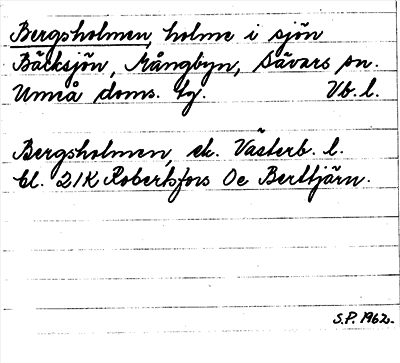 Bergsholmen, holme i sjön
Bäcksjön, Mångbyn, Sävars sn.
Umeå doms. tg. Vb. l.
Bergsholmen, ek. Västerb. l.
bl. 21K Robertsfors Oe Berttjärn.
S.P. 1962.